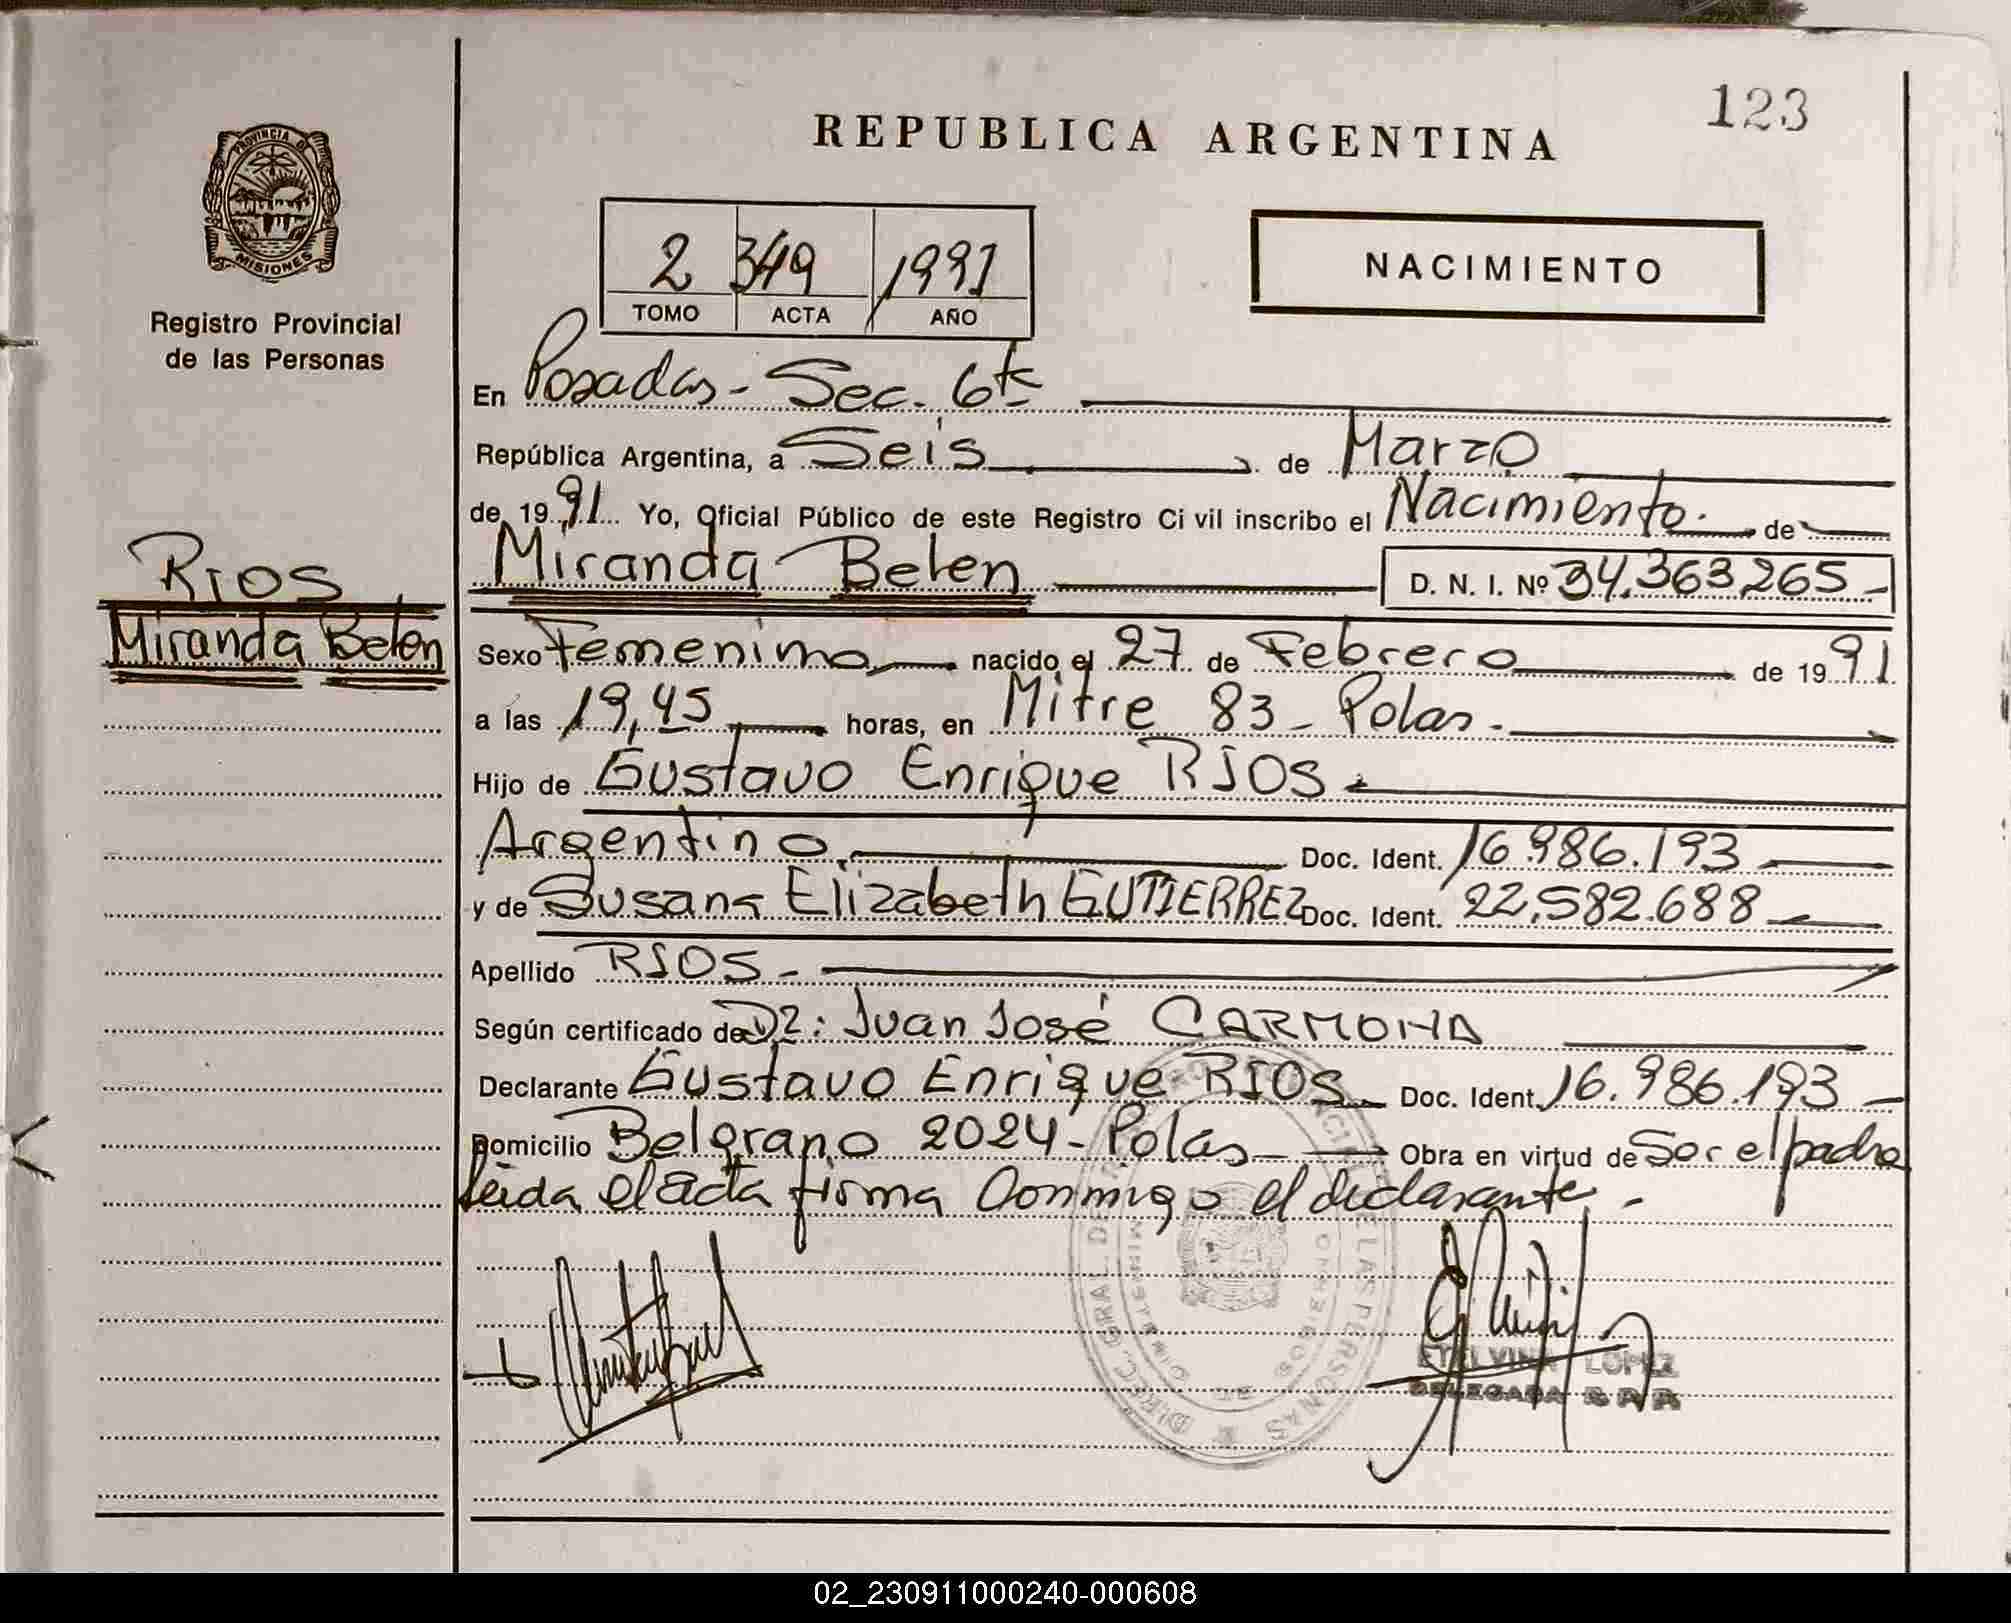 123
REPUBLICA ARGENTINA
PROVINCIA DE
MISIONES
Registro Provincial
de las Personas
2 349 1991
TOMO ACTA AÑO
NACIMIENTO
En Posadas - Sec. 6ta
República Argentina, a Seis de Marzo
de 1991 Yo, Oficial Público de este Registro Ci vil inscribo el Nacimiento. de
Miranda Belen D. N. I. Nº 34.363.265
RIOS
Miranda Belen
Sexo Femenino nacido el 27 de Febrero de 1991
a las 19,45 horas, en Mitre 83 - Pdas.
Hijo de Gustavo Enrique RIOS
Argentino, Doc. Ident. 16.986.193
y de Susana Elizabeth GUTIERREZ Doc. Ident. 22.582.688
Apellido RIOS -
Según certificado de Dr: Juan José CARMONA
Declarante Gustavo Enrique RIOS Doc. Ident. 16.986.193
Domicilio Belgrano 2024 - Pdas Obra en virtud de Ser el padre
leida el acta firma conmigo el declarante. -
ETELVINA LOPEZ
DELEGADA R. P. P.
02_230911000240-000608